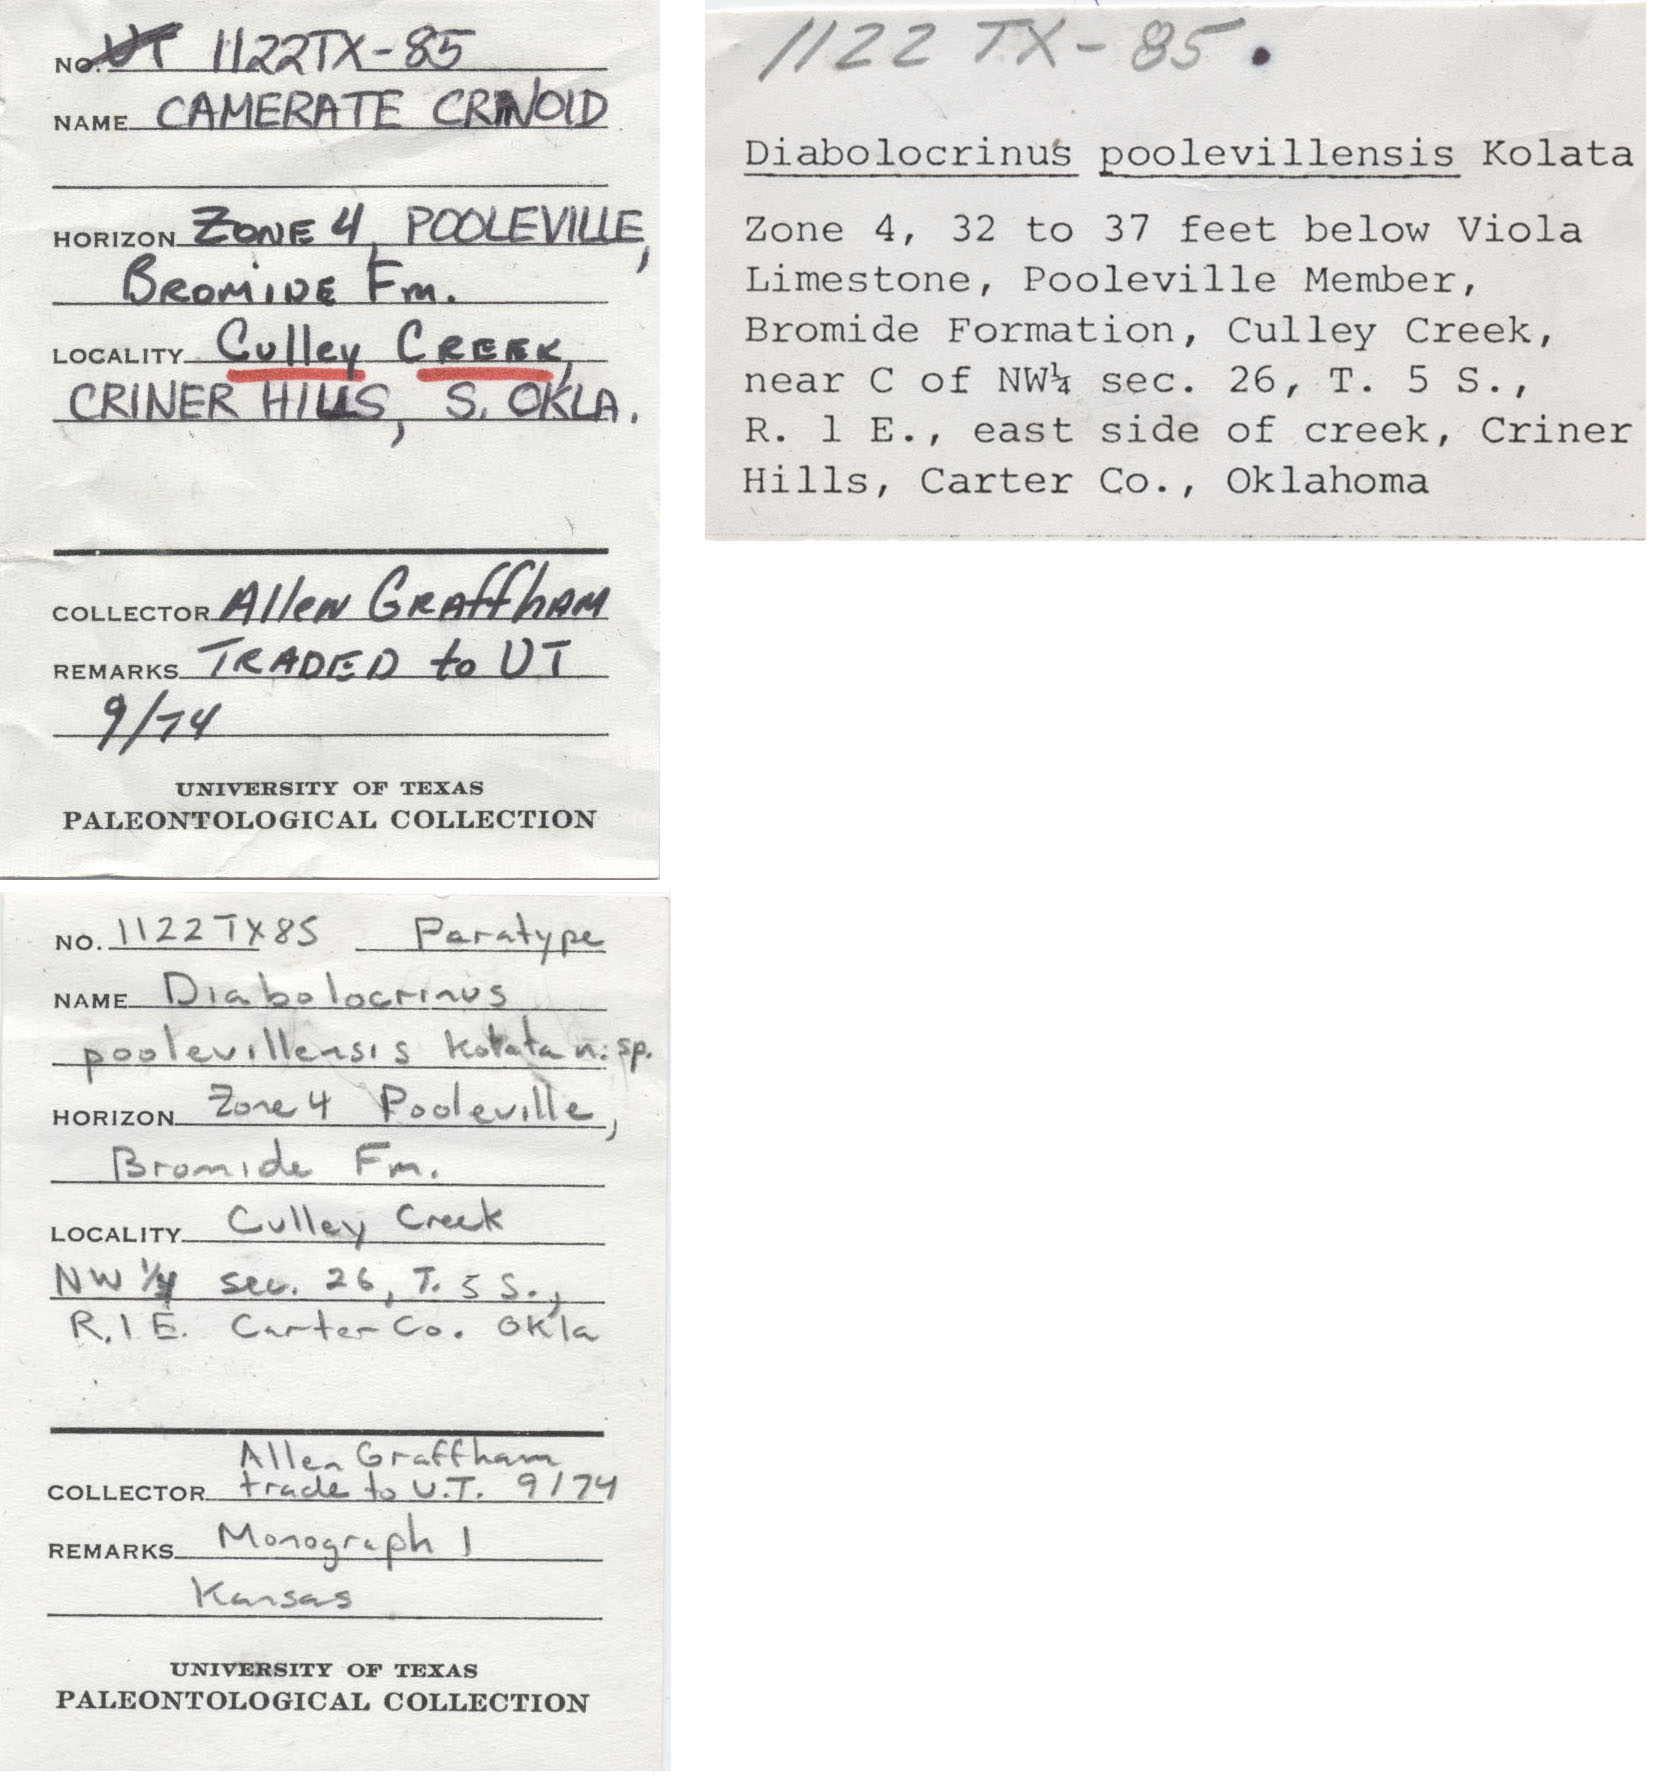 NO. UT 1122TX-85
NAME CAMERATE CRINOID
HORIZON ZONE 4, POOLEVILLE,
BROMIDE Fm.
LOCALITY Culley CREEK,
CRINER HILLS, S. OKLA.
COLLECTOR Allen GRAffhAM
REMARKS TRADED to UT
9/74
UNIVERSITY OF TEXAS
PALEONTOLOGICAL COLLECTION
1122 TX-85.
Diabolocrinus poolevillensis Kolata
Zone 4, 32 to 37 feet below Viola
Limestone, Pooleville Member,
Bromide Formation, Culley Creek,
near C of NW¼ sec. 26, T. 5 S.,
R. 1 E., east side of creek, Criner
Hills, Carter Co., Oklahoma
NO. 1122TX85 Paratype
NAME Diabolocrinus
poolevillensis Kolata n. sp.
HORIZON Zone 4 Pooleville,
Bromide Fm.
LOCALITY Culley Creek
NW 1/4 sec. 26, T. 5 S.,
R. 1 E. Carter Co. Okla
Allen Graffham
COLLECTOR trade to U.T. 9/74
REMARKS Monograph 1
Kansas
UNIVERSITY OF TEXAS
PALEONTOLOGICAL COLLECTION